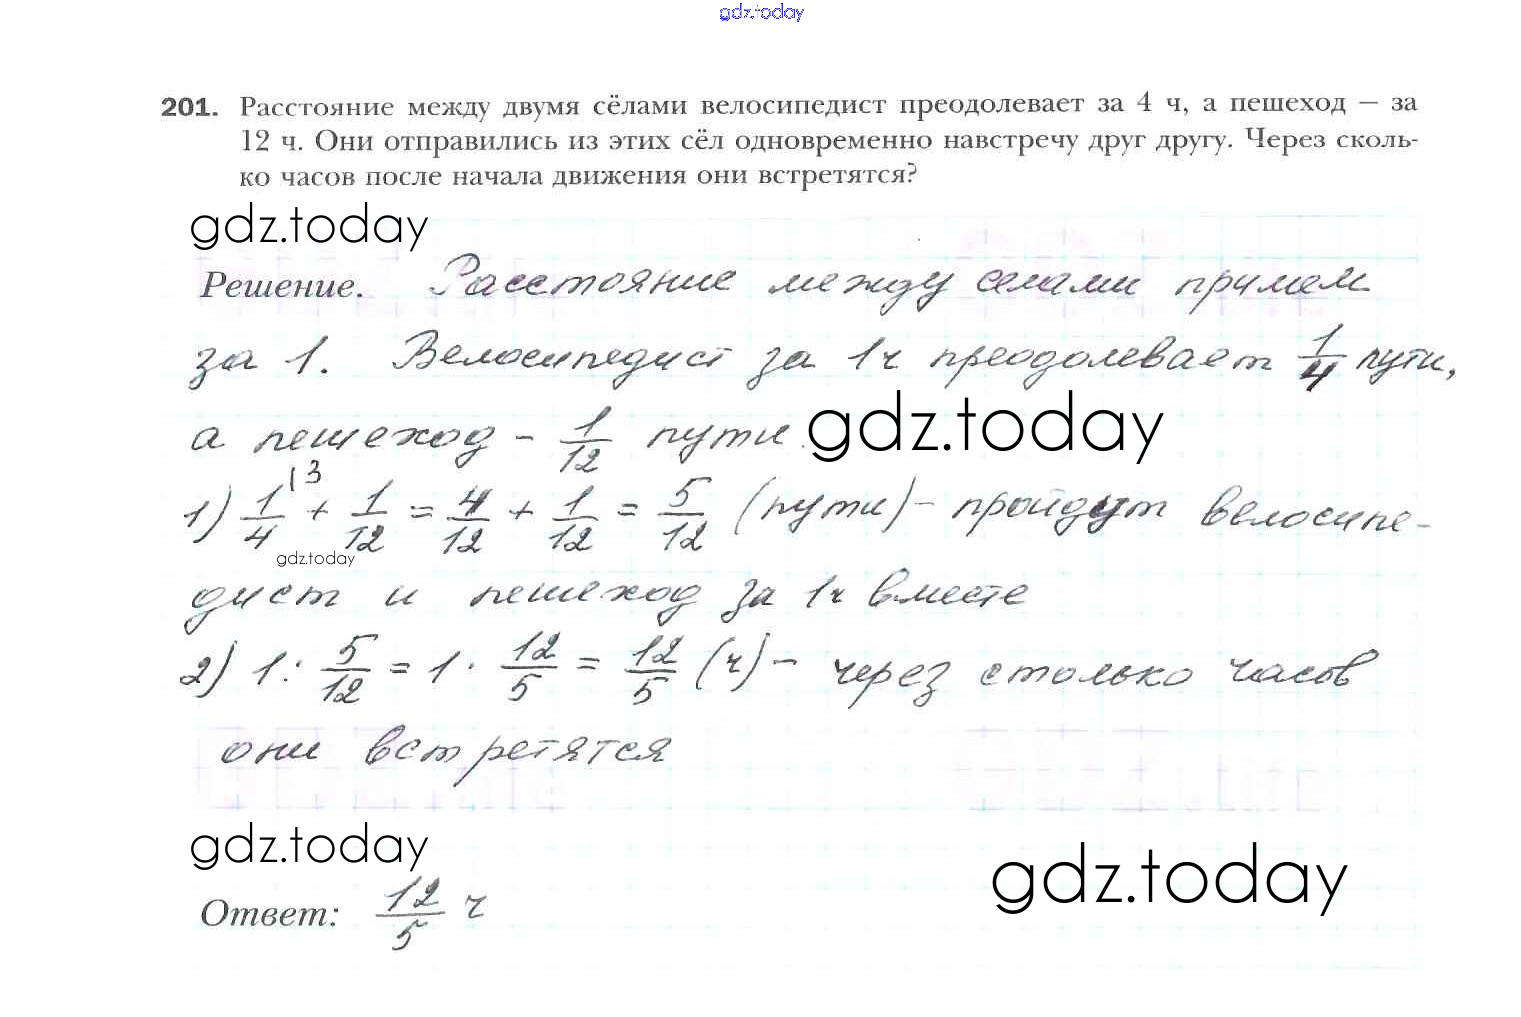 gdz.today
201. Расстояние между двумя сёлами велосипедист преодолевает за 4 ч, а пешеход – за
12 ч. Они отправились из этих сёл одновременно навстречу друг другу. Через сколь-
ко часов после начала движения они встретятся?
gdz.today
Решение. Расстояние между селами примем
за 1. Велосипедист за 1ч преодолевает 1/4 пути,
а пешеход – 1/12 пути.
gdz.today
1) 1/4 \3 + 1/12 = 4/12 + 1/12 = 5/12 (пути) – пройдут велосипе-
gdz.today
дист и пешеход за 1ч вместе
2) 1 : 5/12 = 1 · 12/5 = 12/5 (ч) – через столько часов
они встретятся
gdz.today
gdz.today
Ответ: 12/5 ч